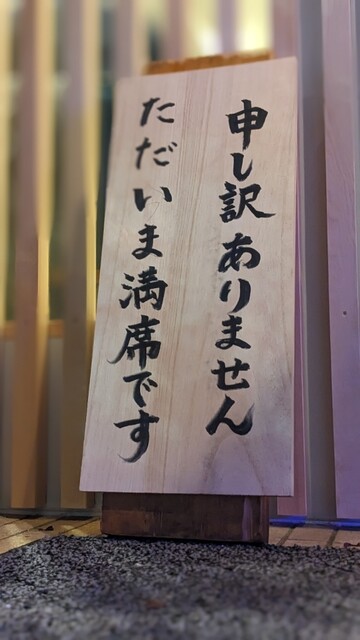 申し訳ありません
ただいま満席です